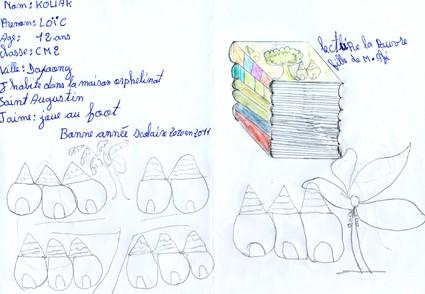 Nom: KOLIAK
Prenom: LOÏC
Age: 12 ans
Classe: CM2
Ville: Dapaong
J'habite dans la maison orphelinat
Saint Augustin
J'aime: joue au foot
Bonne année Scolaire 2010 en 2011
la
de M.